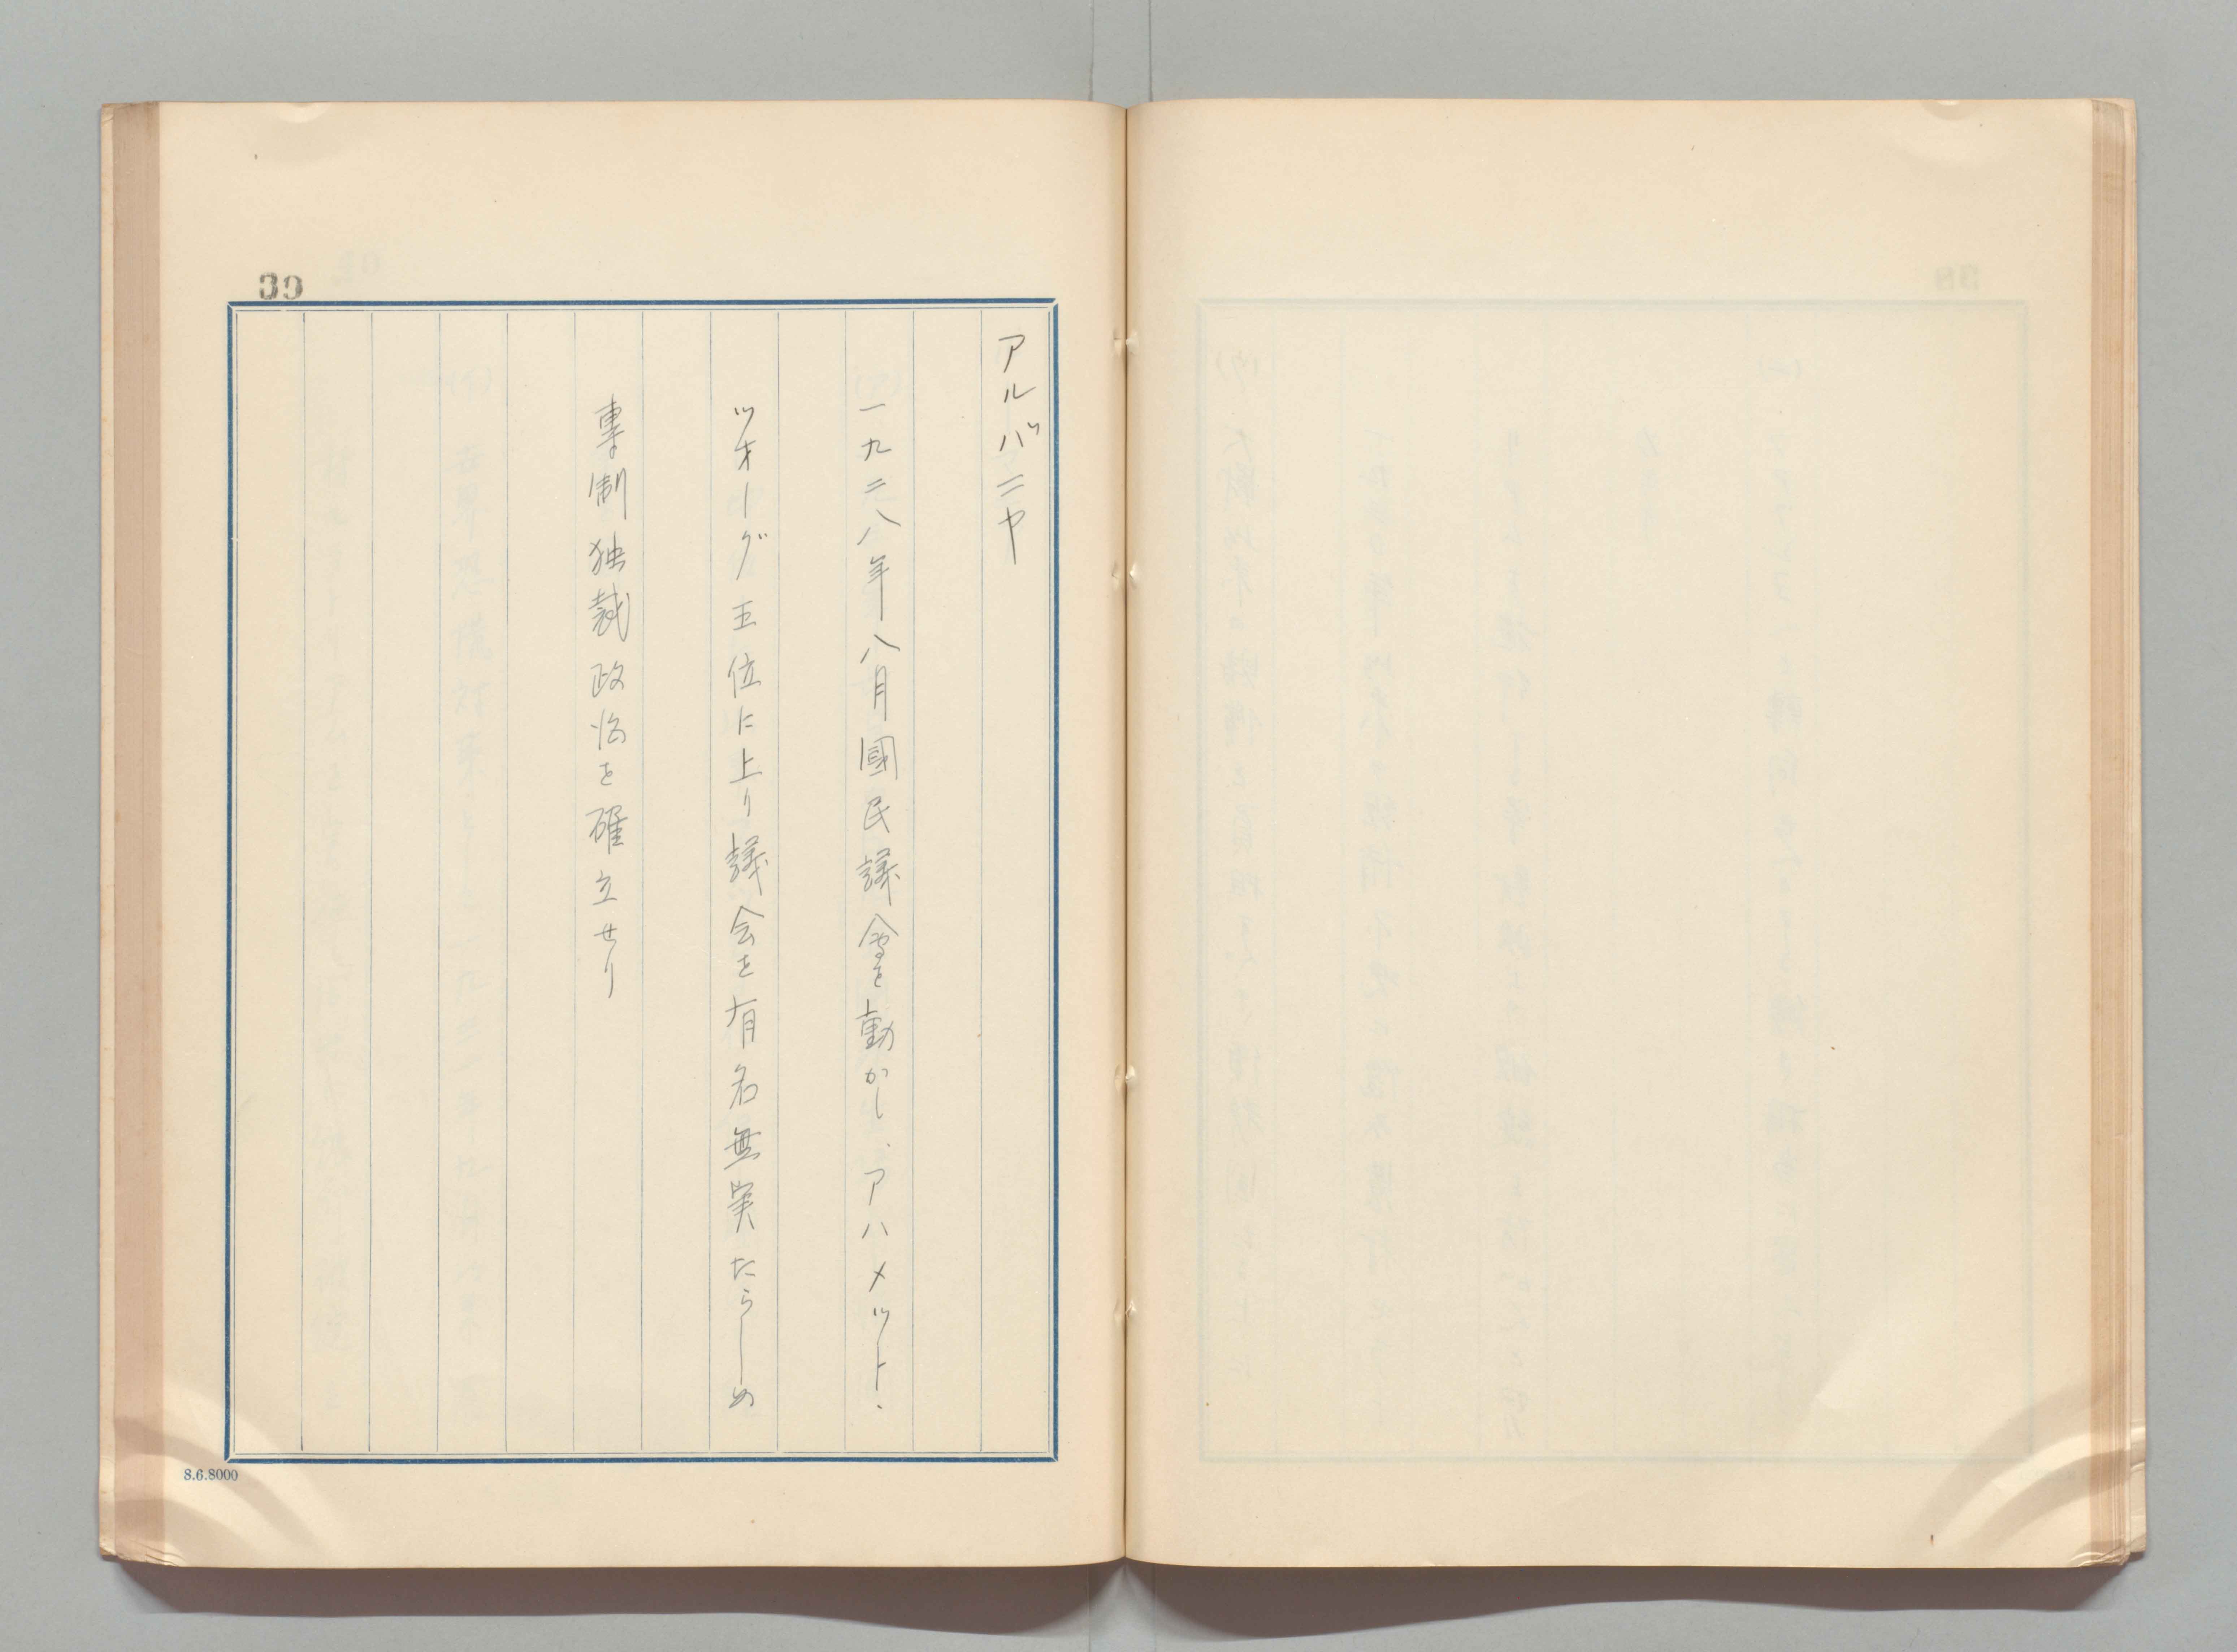 39
アルバニヤ
一九二八年八月國民議會を動かし、アハメット・
ツオーグ王位に上り議会を有名無実たらしめ
專制独裁政治を確立せり
8.6.8000